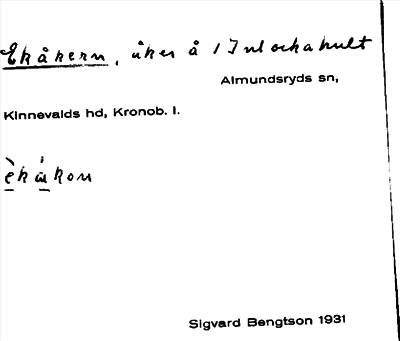 Ekåkern, åker å 1 Inlockahult
Almundsryds sn,
Kinnevalds hd, Kronob. l.
èkåkon
Sigvard Bengtson 1931